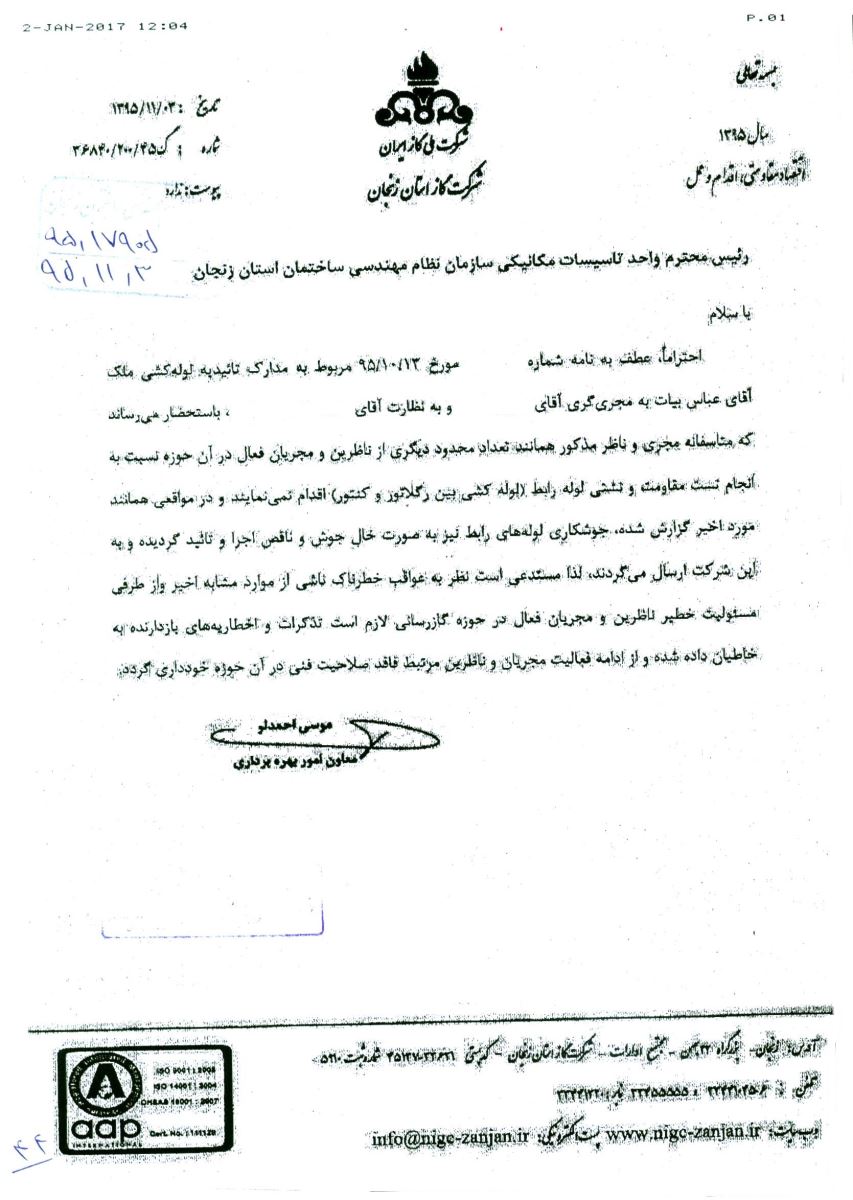 2-JAN-2017 12:04
P.01
بسمه تعالی
سال ۱۳۹۵
اقتصاد مقاومتی، اقدام و عمل
شرکت ملی گاز ایران
شرکت گاز استان زنجان
تاریخ : ۱۳۹۵/۱۱/۰۳
شماره : گ۳۶۸۴۰/۲۰۰/۴۵
پیوست: ندارد
۹۵,۱۷۹۰۵
۹۵,۱۱,۳
رئیس محترم واحد تاسیسات مکانیکی سازمان نظام مهندسی ساختمان استان زنجان
با سلام
احتراماً، عطف به نامه شماره مورخ ۹۵/۱۰/۱۳ مربوط به مدارک تائیدیه لوله‌کشی ملک
آقای عباس بیات به مجری‌گری آقای و به نظارت آقای ، باستحضار می‌رساند
که متاسفانه مجری و ناظر مذکور همانند تعداد محدود دیگری از ناظرین و مجریان فعال در آن حوزه نسبت به
انجام تست مقاومت و نشتی لوله رابط (لوله کشی بین رگلاتور و کنتور) اقدام نمی‌نمایند و در مواقعی همانند
مورد اخیر گزارش شده، جوشکاری لوله‌های رابط نیز به صورت خال جوش و ناقص اجرا و تائید گردیده و به
این شرکت ارسال می‌گردند، لذا مستدعی است نظر به عواقب خطرناک ناشی از موارد مشابه اخیر واز طرفی
مسئولیت خطیر ناظرین و مجریان فعال در حوزه گازرسانی لازم است تذکرات و اخطاریه‌های بازدارنده به
خاطیان داده شده و از ادامه فعالیت مجریان و ناظرین مرتبط فاقد صلاحیت فنی در آن حوزه خودداری گردد.
موسی احمدلو
معاون امور بهره برداری
آدرس: زنجان- بزرگراه ۲۲ بهمن - مجتمع ادارات - شرکت گاز استان زنجان - کدپستی
تلفن :
وب سایت: www.nigc-zanjan.ir پست الکترونیکی: info@nigc-zanjan.ir
A
aap
INTERNATIONAL
ISO 9001 : 2008
ISO 14001 : 2004
OHSAS 18001 : 2007
Cert. No. :
۴۴